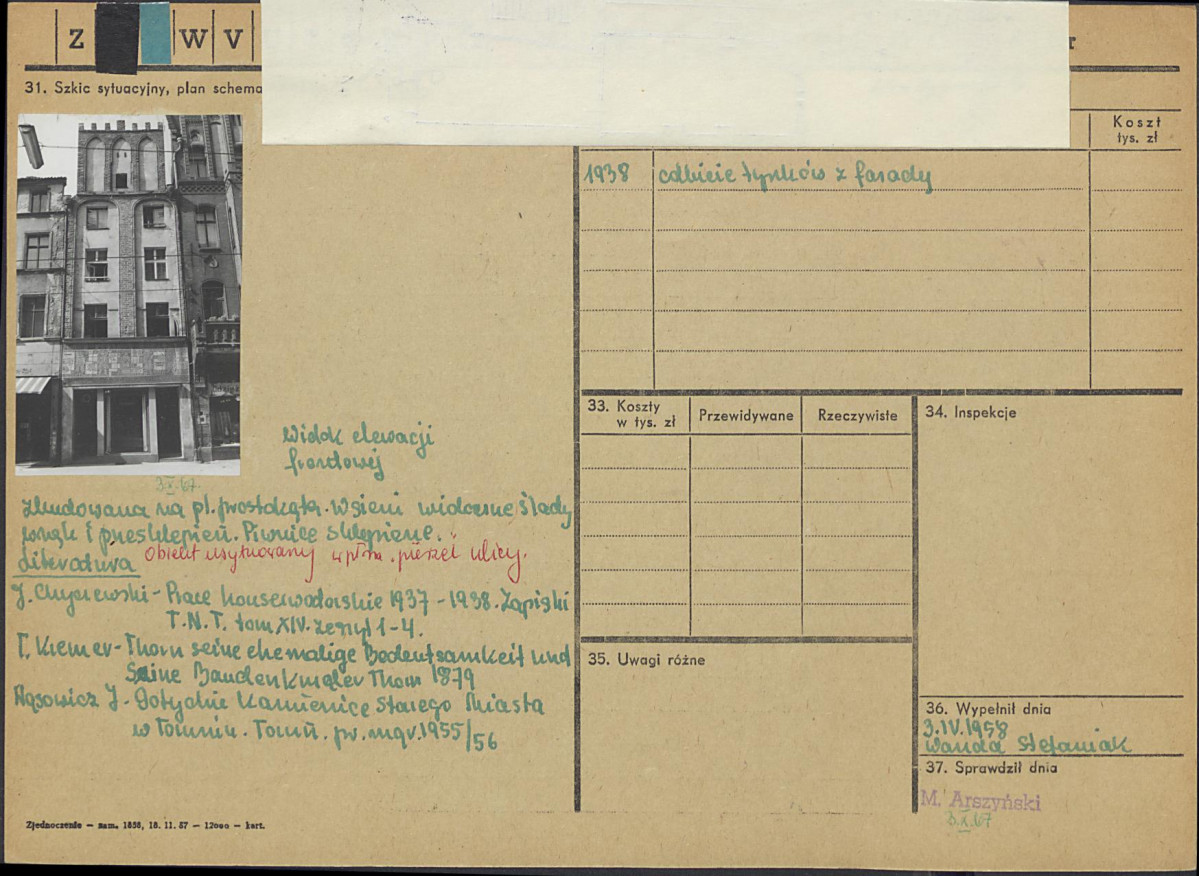 Z W V
31. Szkic sytuacyjny, plan schema
Koszt
tys. zł
1938 odbicie tynków z fasady
Widok elewacji
frontowej
3.X.67.
Zbudowana na pl. prostokąta. W sieni widoczne ślady
wnęk i przesklepień. Piwnice sklepione.
Obiekt usytuowany w płn. pierzei ulicy.
Literatura
J. Chyczewski - Prace konserwatorskie 1937 - 1938. Zapiski
T.N.T. tom XIV. zeszyt 1-4.
Thorn seine ehemalige Bedeutsamkeit und
Seine Baudenkmäler Thorn 1879
Wąsowicz J. Gotyckie Kamienice Starego Miasta
w Toruniu. Toruń. pr. mgr. 1955/56
33. Koszty
w tys. zł
Przewidywane
Rzeczywiste
34. Inspekcje
35. Uwagi różne
36. Wypełnił dnia
3.IV.1958
Wanda Stefaniak
37. Sprawdził dnia
M. Arszyński
3.X.67
Zjednoczenie — zam. 1858, 18. 11. 57 — 12000 — kart.